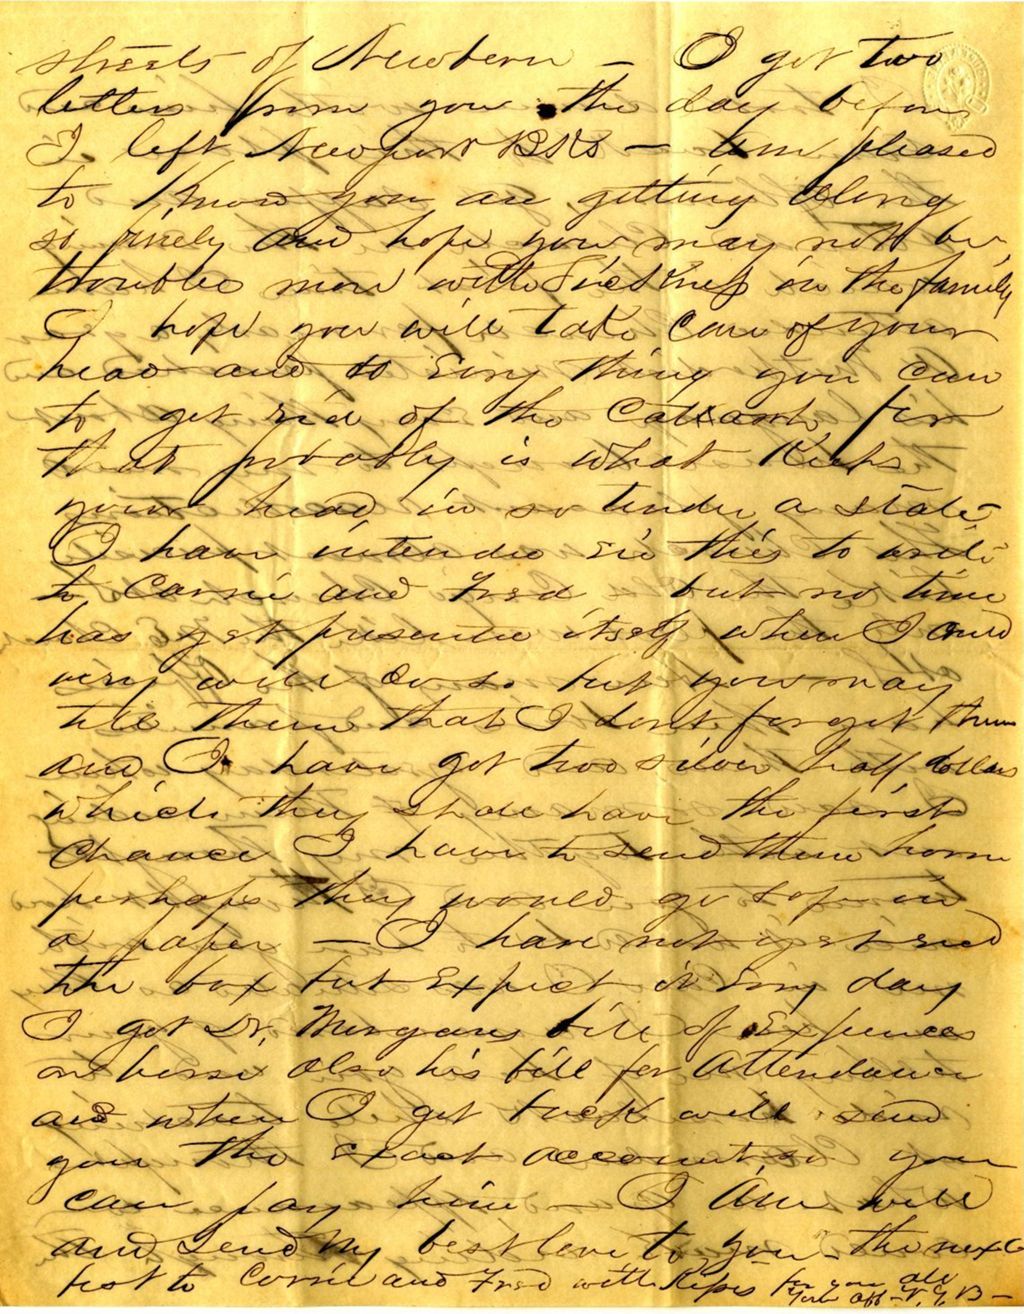 streets of Newbern – I got two
letters from you the day before
I left Newport Bks – Am pleased
to know you are getting along
so nicely and hope you may not be
troubled more with Sickness in the family
I hope you will take care of your
head and do Evry thing you can
to get rid of the Catarrh for
that probably is what Keeps
your head in so tender a state
I have intended ere this to write
to Carrie and Fred but no time
has yet presented itself when I could
very well do so but you may
tell them that I dont forget them
and I have got two silver half dollars
which they shall have the first
chance I have to send them home
perhaps they would go safe in
a paper – I have not yet recd
the box but Expect it Evry day
I got Dr. Morgans bill of Expences
on horse also his bill for Attendance
and when I get back will send
you the Exact account, so you
can pay him – I Am well
and Send My best love to you – the next
best to Carrie and Fred with Kisses for you all
Yours Aff –